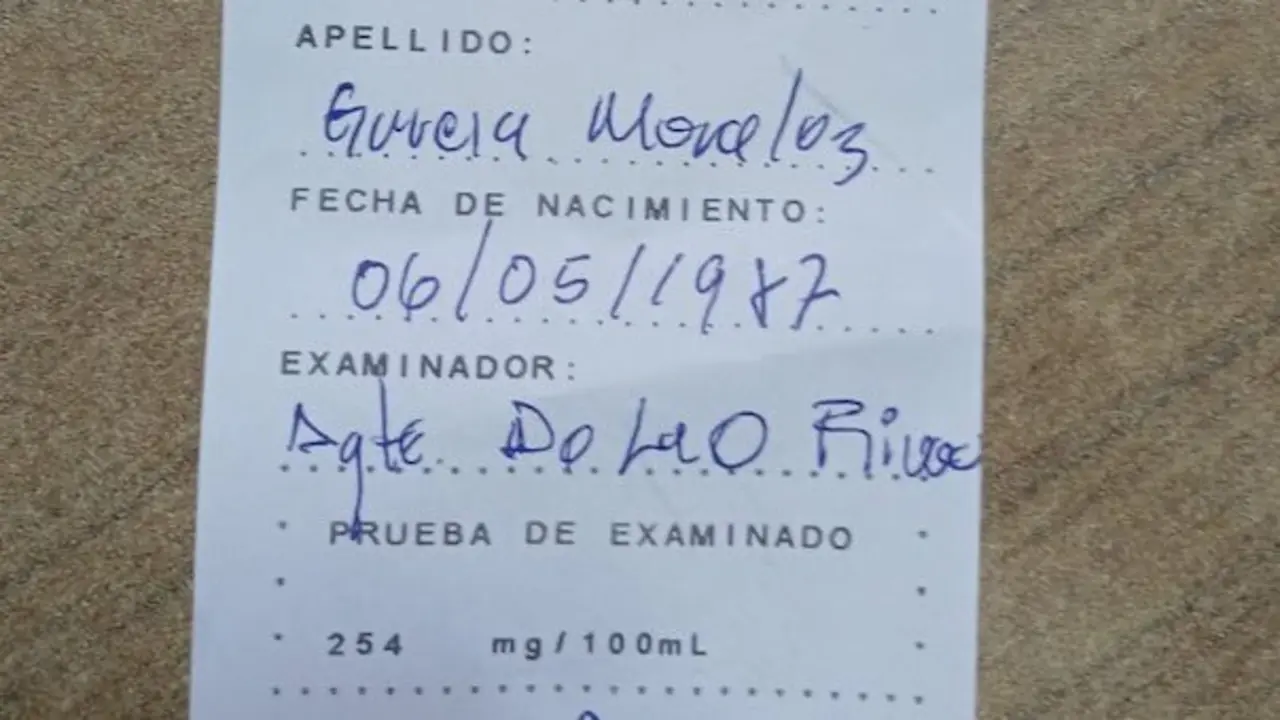 APELLIDO:
Garcia Morales
FECHA DE NACIMIENTO:
06/05/1987
EXAMINADOR:
Agte De La O Rivas
PRUEBA DE EXAMINADO
254 mg/100mL